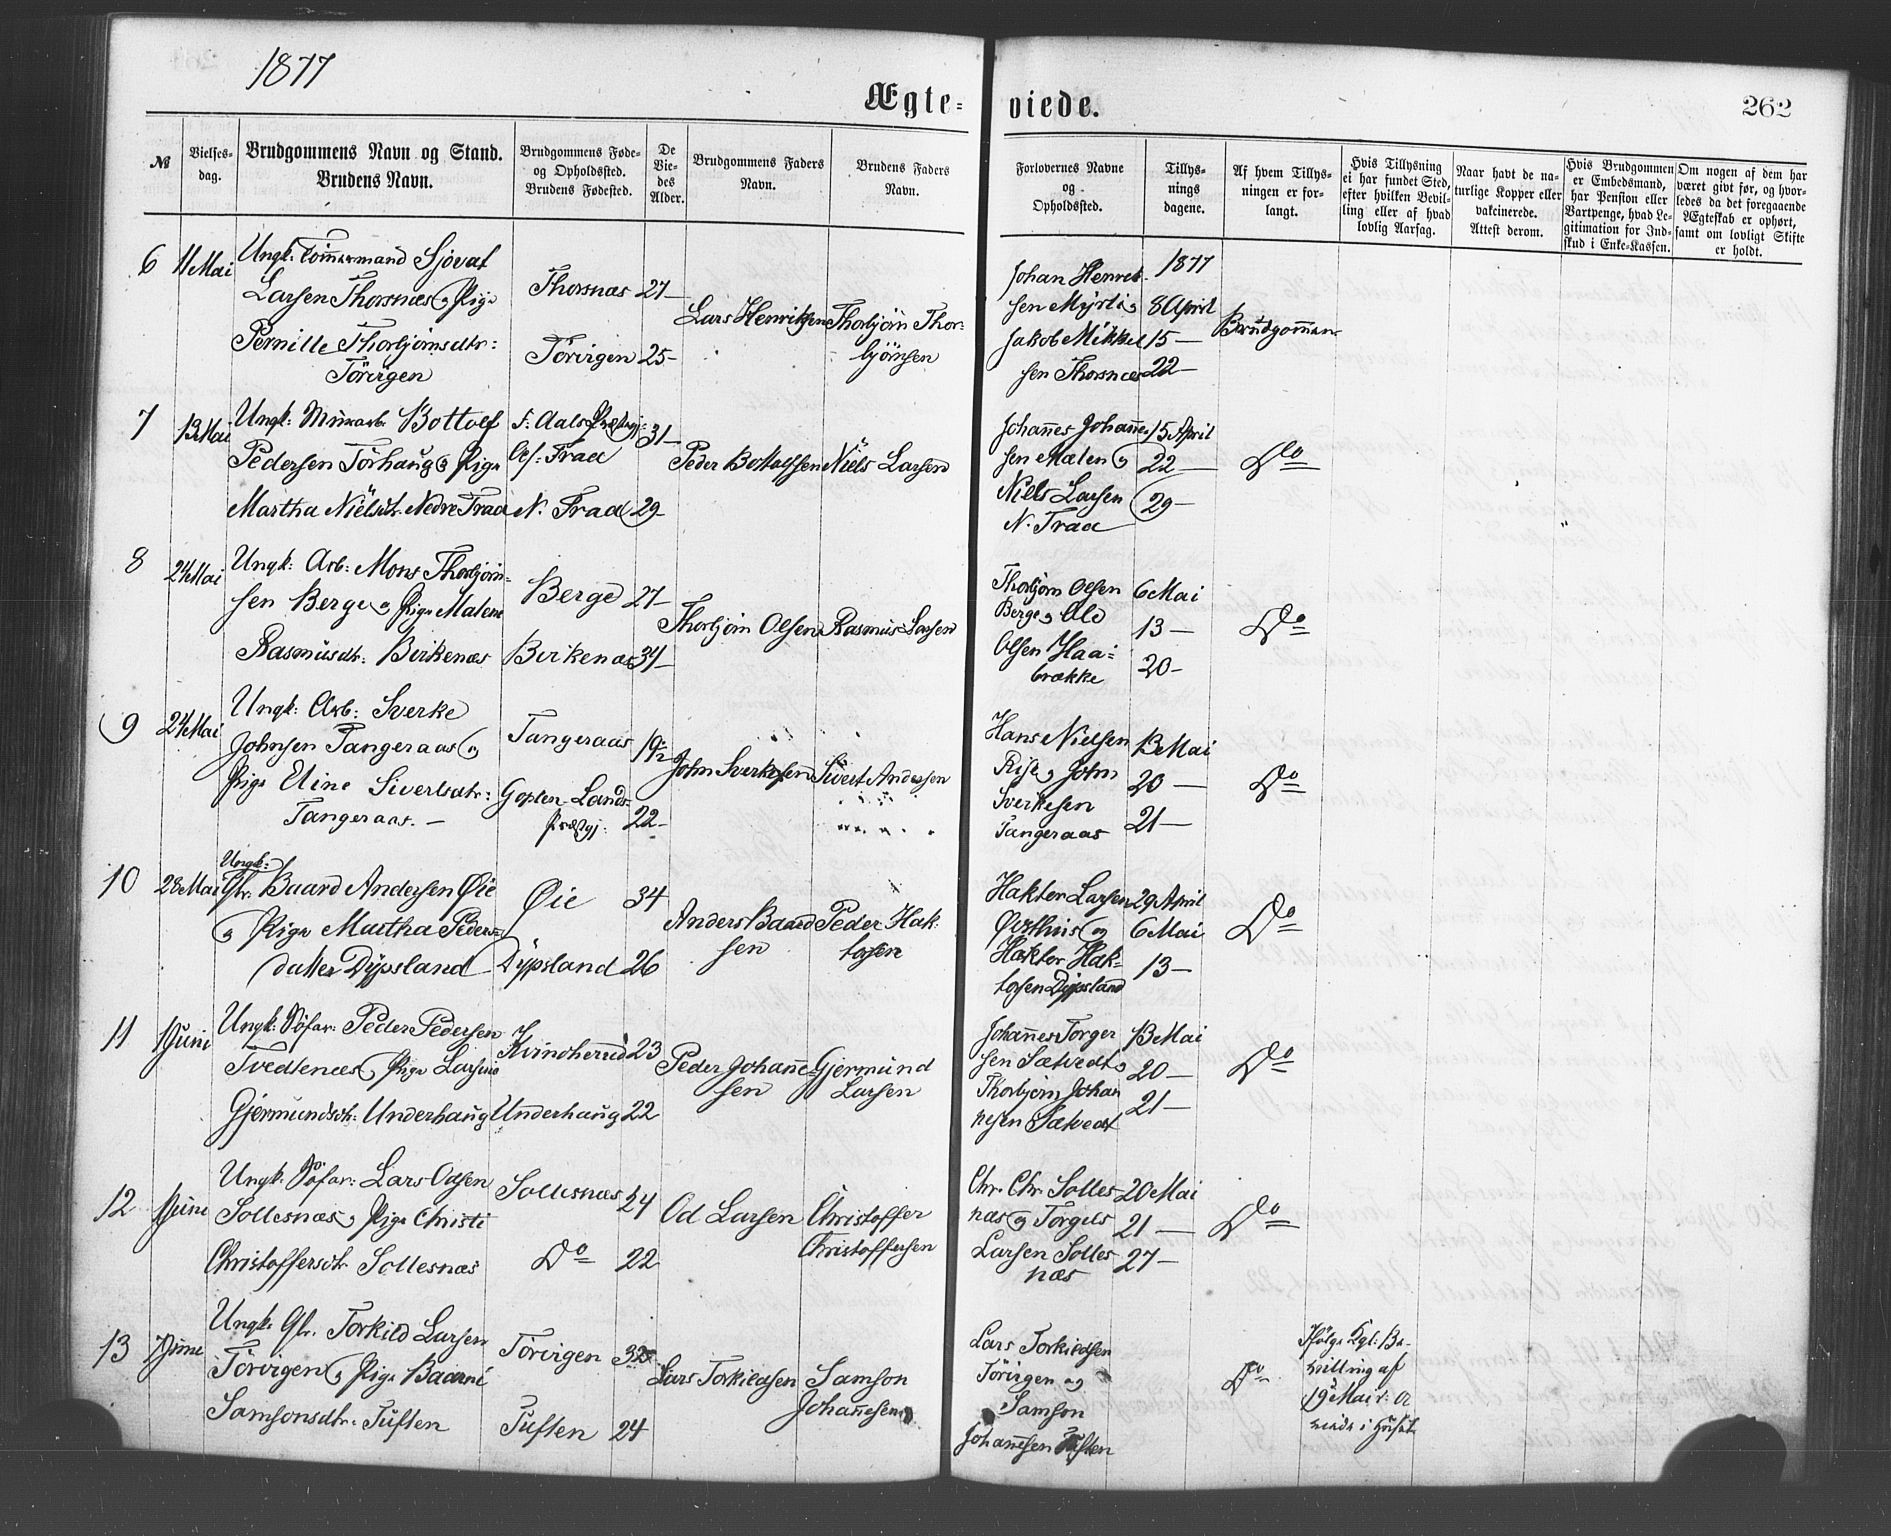 1877
Ægte-
viede.
262
№
Vielses-
dag.
Brudgommens Navn og Stand.
Brudens Navn.
Brudgommens Føde-
og Opholdssted.
Brudens Fødested.
De
Vie-
des
Alder.
Brudgommens Faders
Navn.
Brudens Faders
Navn.
Forlovernes Navne
og
Opholdssted.
Tillys-
nings
dagene.
Af hvem Tillys-
ningen er for-
langt.
Hvis Tillysning
ei har fundet Sted,
efter hvilken Bevil-
ling eller af hvad
lovlig Aarsag.
Naar havt de na-
turlige Kopper eller
vakcinerede.
Attest derom.
Hvis Brudgommen
er Embedsmand,
har Pension eller
Vartpenge, hvad Le-
gitimation for Ind-
skud i Enke-Kassen.
Om nogen af dem har
været gift før, og hvor-
ledes da det foregaaende
Ægteskab er ophørt,
samt om lovligt Skifte
er holdt.
6
11 Mai
Ungk: Tömmermand Sjövat
Larsen Thorsnæs og Pige
Pernille Thorbjörnsdtr:
Törvigen
Thorsnæs
Törvigen
27
25
Lars Henriksen
Thorbjörn Thor-
björnsen
Johan Henrek-
sen Myrti og
Jakob Mikkel
sen Thorsnæs
1877
8 April
15
22
Brudgommen
7
13 Mai
Ungk: Murarb. Bottolf
Pedersen Törhaug og Pige
Martha Nielsdtr. Nedre Traa
F: Aals Præstgj:
O: Traa
N. Traa
31
29
Peder Bottolfsen
Niels Larsen
Johannes Johanne
sen Mælen og
Niels Larsen
N. Traa
15 April
22
29
Do
8
24 Mai
Ungk: Arb: Mons Thorbjörn-
sen Berge og Pige Malene
Rasmusdtr: Birkenæs
Berge
Birkenæs
27
31
Thorbjörn Olsen
Rasmus Larsen
Thorbjörn Olsen
Berge og Ole
Olsen Haa-
brække
6 Mai
13
20
Do
9
24 Mai
Ungk: Arb: Sverke
Johnsen Tangeraas og
Pige Eline Sivertsdtr:
Tangeraas.
Tangeraas
Goplen Lands
Præstgj.
19 1/2
22
John Sverkesen
Sivert Andersen
Hans Nielsen
Rise og John
Sverkesen
Tangeraas
13 Mai
20
21
Do
10
28 Mai
Ungk:
Gbr. Baard Andersen Øie
og Pige Martha Peders-
datter Dypsland
Øie
Dypsland
34
26
Anders Baard
sen
Peder Hak-
torsen
Haktor Larsen
Øvsthus og
Haktor Hak-
torsen Dypsland
29 April
6 Mai
13
Do
11
1 Juni
Ungk: Söfar: Peder Pedersen
Tvedtenæs og Pige Larsine
Gjermundsdtr: Underhaug
Kvindherred
Underhaug
23
22
Peder Johanne-
sen
Gjermund
Larsen
Johannes Torger
sen Sætvedt og
Thorbjörn Johan
nesen Sætvedt
13 Mai
20
21
Do
12
1 Juni
Ungk: Söfar: Lars Odsen
Sollesnæs og Pige Christi
Christoffersdtr Sollesnæs
Sollesnæs
Do
24
22
Od Larsen
Christoffer
Christoffersen
Chr. Chr. Solles
næs og Torgels
Larsen Solles
næs
20 Mai
21
27
Do
13
7 Juni
Ungk: Gbr. Torkild Larsen
Törvigen og Pige Baarni
Samsonsdtr: Tuften
Törvigen
Tuften
32
24
Lars Torkildsen
Samson
Johannesen
Lars Torkildsen
Törvigen og
Samson
Johannesen Tuften
Do
Ifölge Kgl: Be-
villing af
19 Mai
viede i Huset